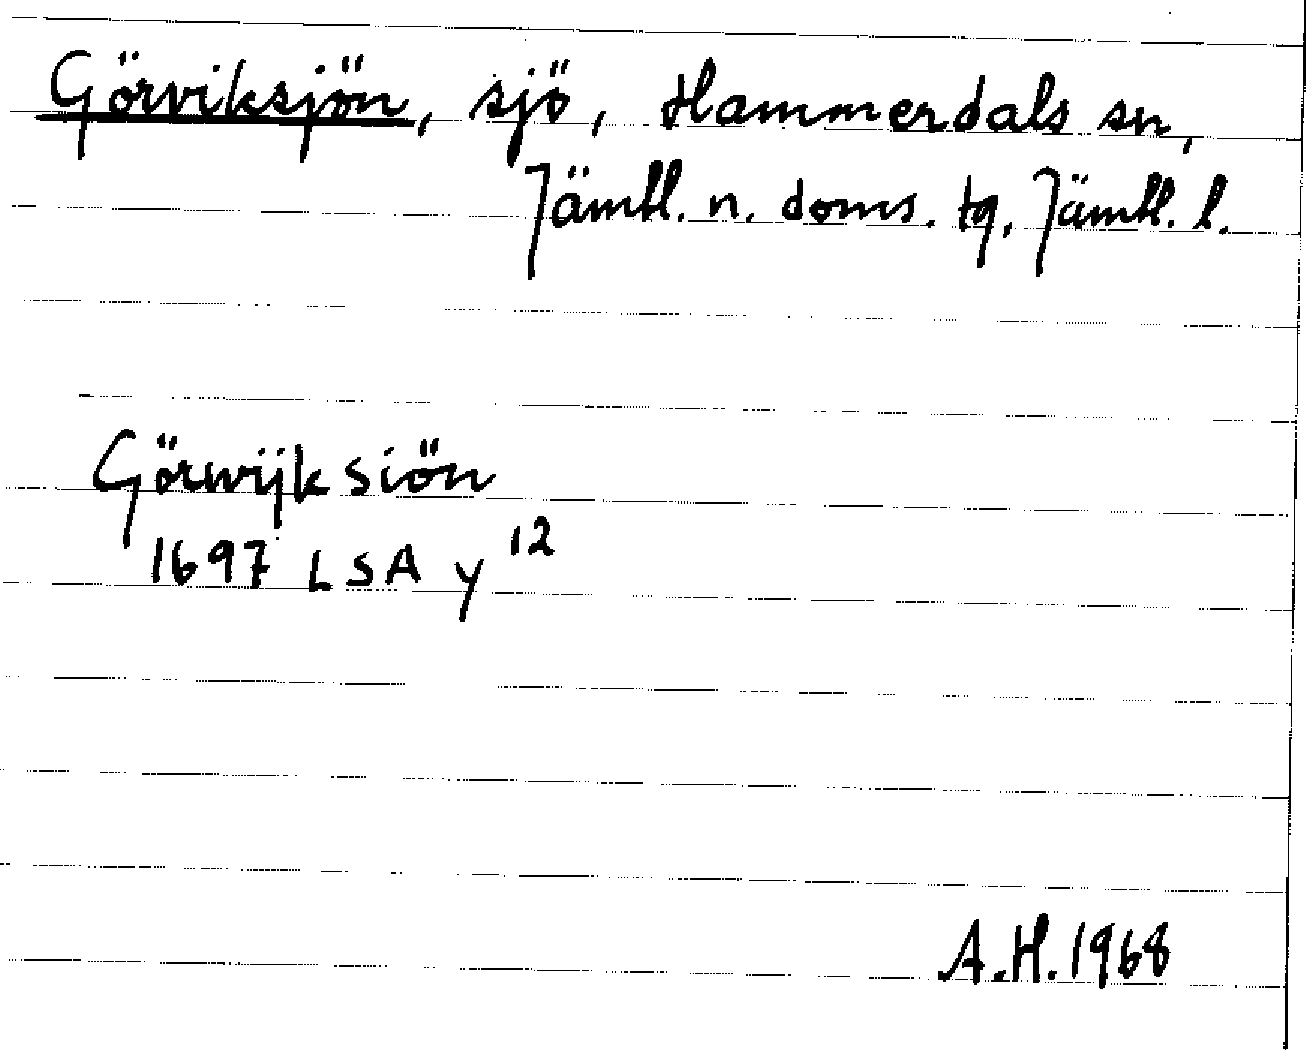 Görviksjön, sjö, Hammerdals sn,
Jämtl. n. doms. tg, Jämtl. l.
Görwijk siön
1697 LSA y 12
A.H. 1968